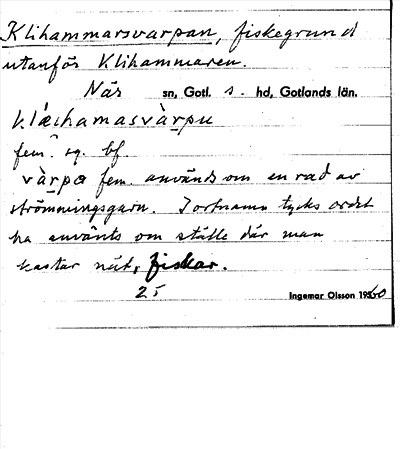 Klihammarsvarpan, fiskegrund
utanför Klihammaren.
När sn, Gotl. s. hd, Gotlands län.
klæihamasvàrpu
fem. sg. bf.
vàrpa fem. används om en rad av
strömmingsgarn. I ortnamn tycks ordet
ha använts om ställe där man
kastar nät, fiskar.
25
Ingemar Olsson 1960